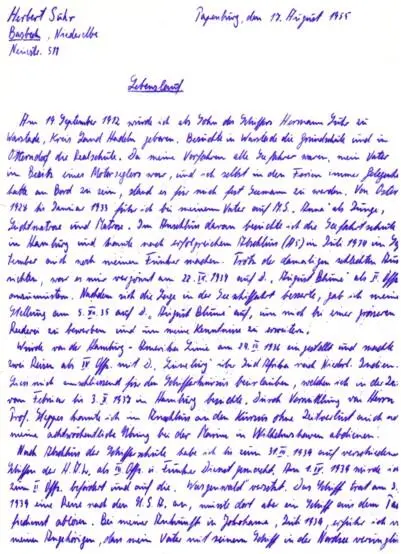 Herbert Suhr
Basbeck, Niederelbe
Neuestr. 511
Papenburg, den 17. August 1955
Lebenslauf
Am 19 September 1912 wurde ich als Sohn des Schiffers Hermann Suhr zu
Warstade, Kreis Land Hadeln geboren. Besuchte in Warstade die Grundschule und in
Otterndorf die Realschule. Da meine Vorfahren alle Seefahrer waren, mein Vater
im Besitz eines Motorseglers war, und ich selbst in den Ferien immer Gelegenheit
hatte an Bord zu sein, stand es für mich fest Seemann zu werden. Von Ostern
1928 bis Januar 1933 fuhr ich bei meinem Vater auf M.S. "Anna" als Junge,
Leichtmatrose und Matrose. Im Anschluss daran besuchte ich die Seefahrtschule
in Hamburg und konnte nach erfolgreichem Abschluss
auch noch meinen Funker machen. Trotz der damaligen schlechten
war es mir vergönnt am 22. 1934 auf D. "August Blume" als II. Offz.
anzumustern. Nachdem sich die Lage in der Seeschiffahrt besserte, gab ich meine
Stellung am 5. 35 auf D. "August Blume" auf, um mich bei einer grösseren
Rederei zu bewerben und um meine Kenntnisse zu erweitern.
Wurde von der Hamburg - Amerika Linie am 24. 1936 eingestellt und machte
zwei Reisen als IV Offz. mit D. über Süd Afrika nach Niederl. Indien.
Liess mich anschliessend für den Schiffer beurlauben, welchen ich in der Zeit
von Februar bis 3. 1937 in Hamburg besuchte. Durch Vermittlung von Herrn
Prof. konnte ich im Anschluss an den Kursus ohne Zeitverlust auch
meine achtwöchentliche Übung bei der Marine in Wilhelmshaven abdienen.
Nach Abschluss der Schiffsschule habe ich bis zum 31. 1939 auf verschiedenen
Schiffen der H.A.L. als Offz. u. Funker Dienst gemacht. Am 1. 1939 wurde ich
zum II Offz. befördert und auf die "Wasgenwald" versetzt. Das Schiff trat am 3.
1939 eine Reise nach den U.S.A. an, musste dort aber ein Schiff aus dem
ablösen. Bei meiner Ankunft in Jokohama, 1939, erfuhr ich von
meinen Angehörigen, dass mein Vater mit seinem Schiff in der Nordsee verunglückt